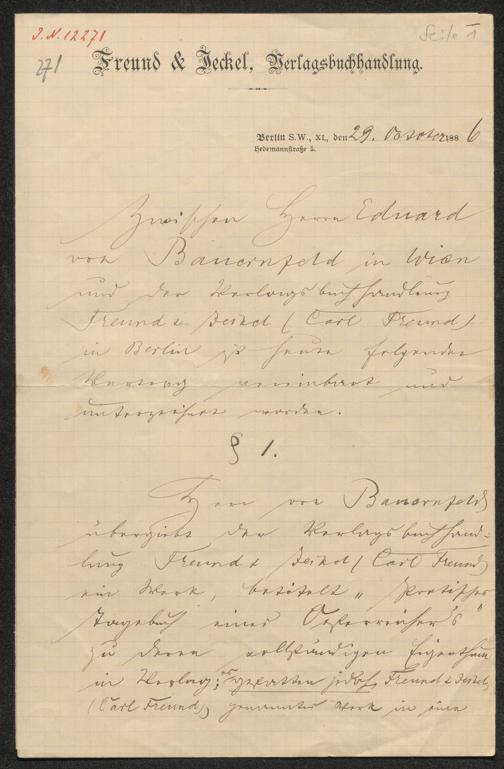 I.N. 12271
Seite 1
271
Freund & Jeckel, Verlagsbuchhandlung.
Berlin S.W., XI., den 29. October 1886
Hedemannstraße 5.
Zwischen Herrn Eduard
von Bauernfeld in Wien
und der Verlagsbuchhandlung
Freund & Jeckel (Carl Freund)
in Berlin ist heute folgender
Vertrag vereinbart und
unterzeichnet worden.
§ 1.
Herr von Bauernfeld
übergiebt der Verlagsbuchhand-
lung Freund & Jeckel (Carl Freund)
ein Werk, betitelt "Poetisches
Tagebuch eines Oesterreicher's"
zu deren vollständigen Eigenthum
in Verlag; jedoch Freund & Jeckel,
(Carl Freund), genanntes Werk in eine